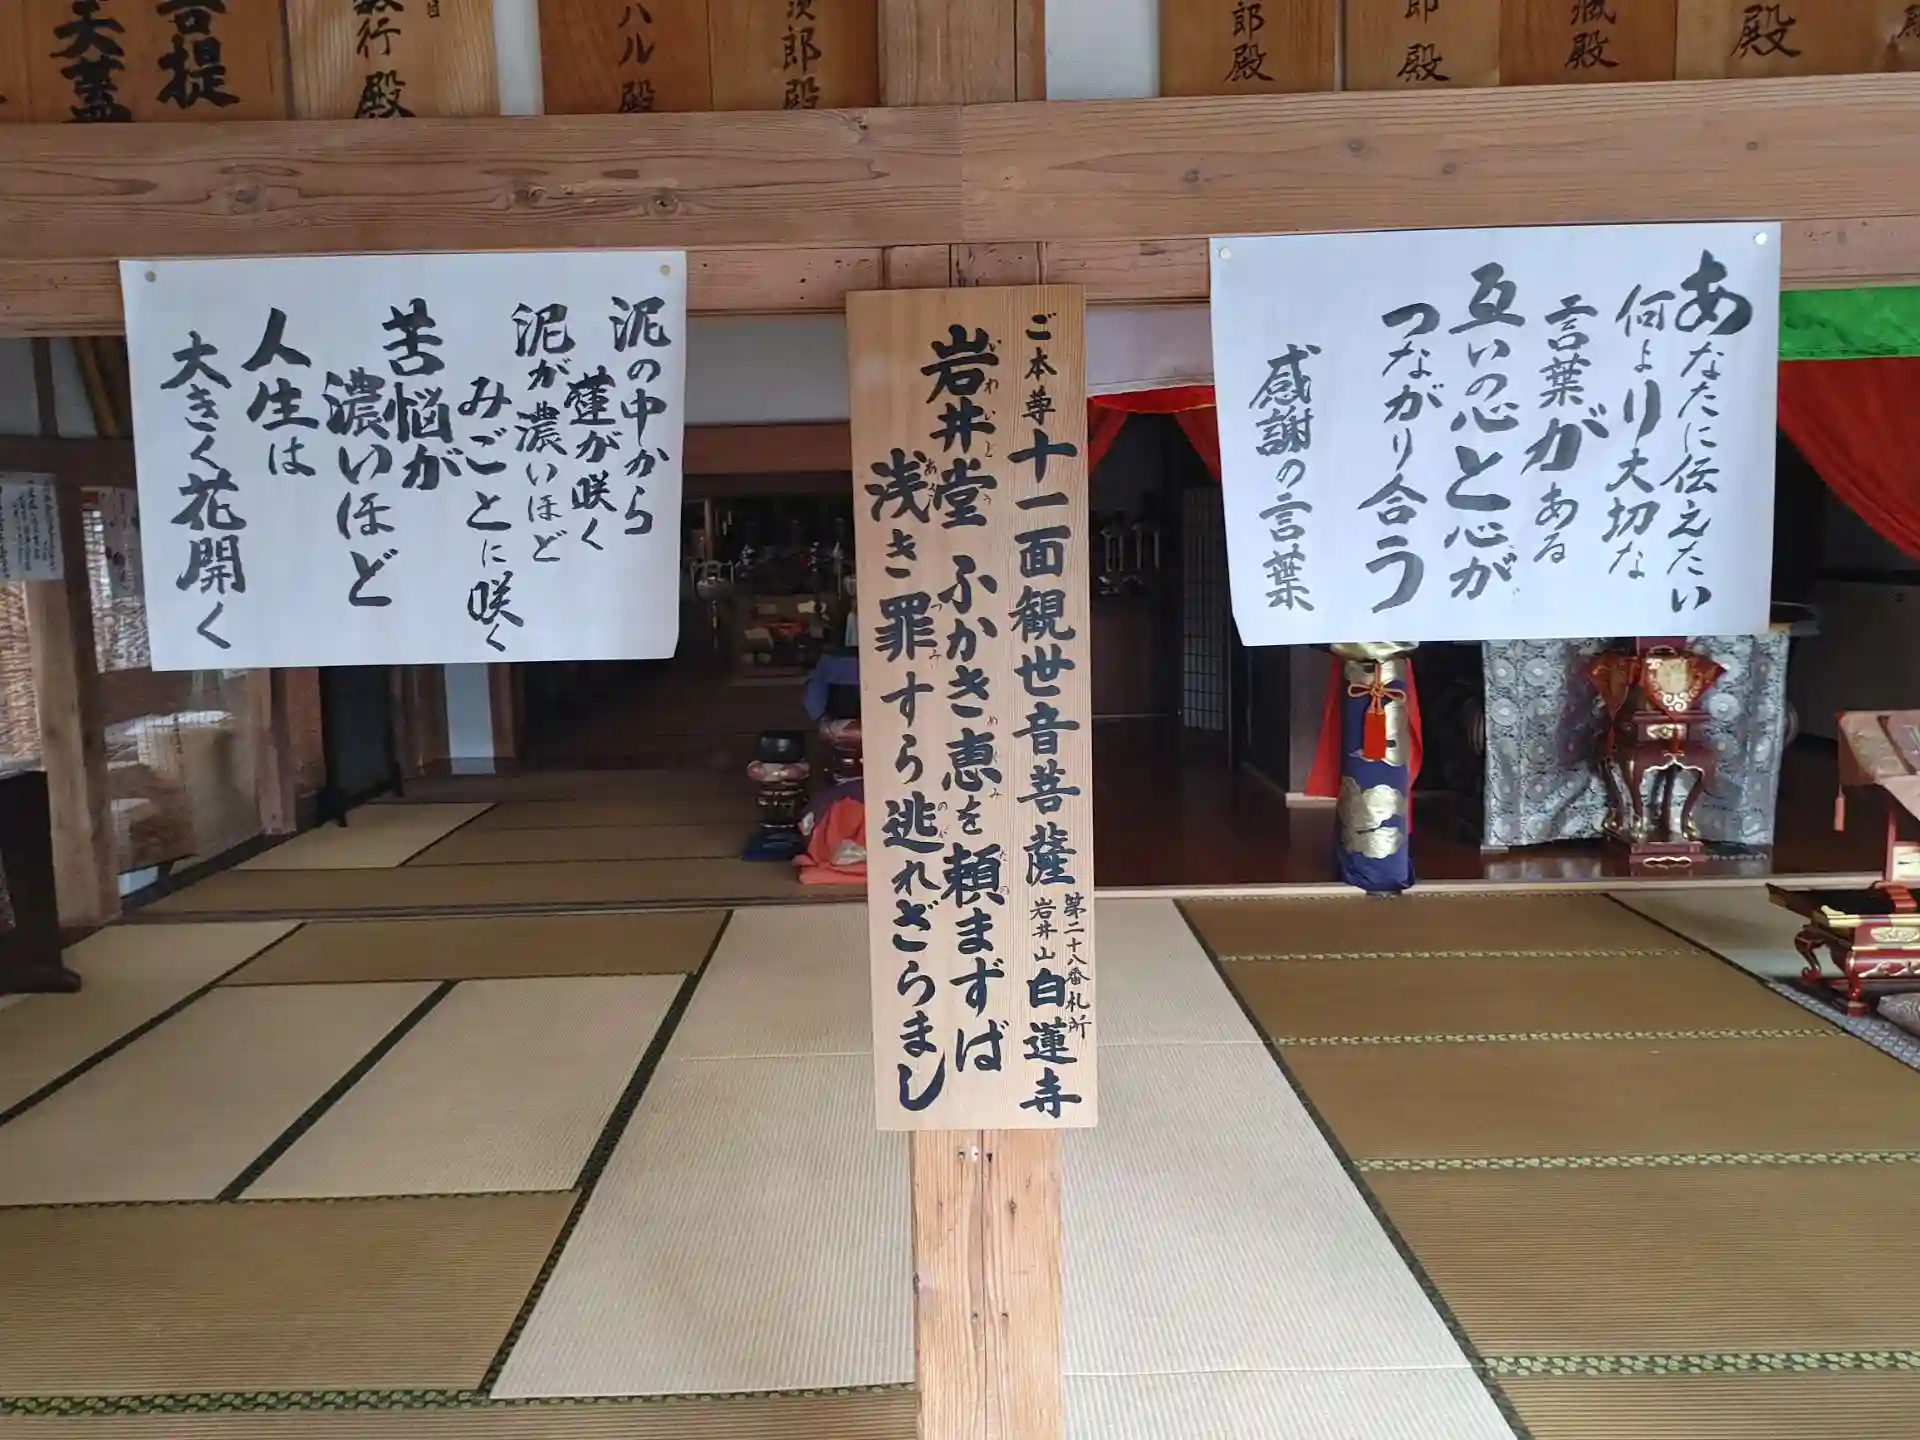 あなたに伝えたい
何より大切な
言葉がある
互いの心と心が
つながり合う
感謝の言葉
ご本尊 十一面観世音菩薩 第二十八番札所 岩井山 白蓮寺
岩井堂 ふかき恵を 頼まずば
いわいどう めぐみ たの
浅き罪すら 逃れざらまし
あさ つみ のが
泥の中から
蓮が咲く
泥が濃いほど
みごとに咲く
苦悩が
濃いほど
人生は
大きく花開く
殿
殿
郎殿
郎殿
郎殿
ハル殿
行殿
菩提
天蓋